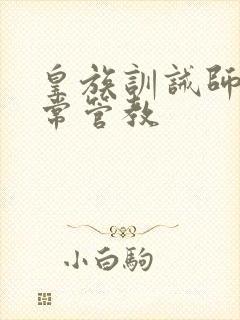 皇族訓誡師
常管教
小白駒